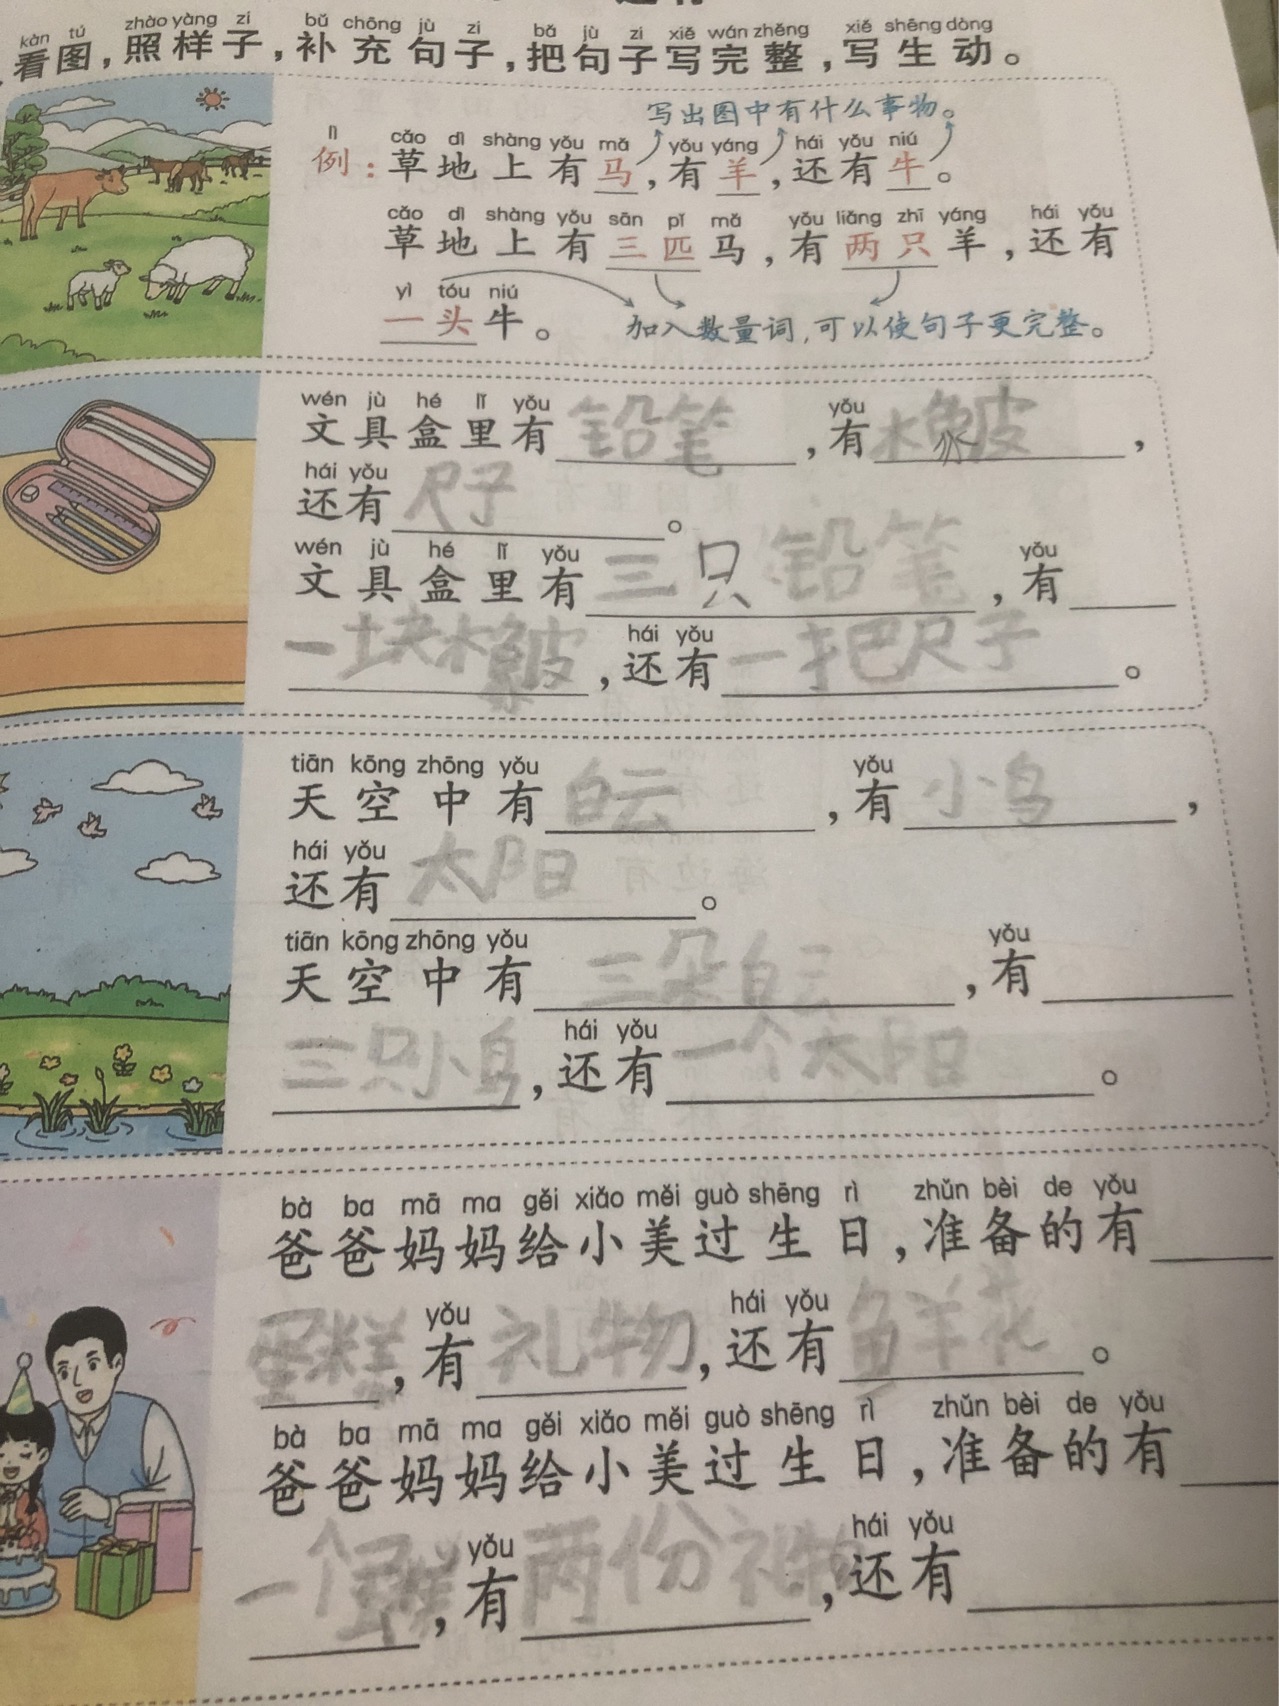 kàn tú zhào yàng zi bǔ chōng jù zi bǎ jù zi xiě wán zhěng xiě shēng dòng
看图，照样子，补充句子，把句子写完整，写生动。
写出图中有什么事物。
lì cǎo dì shàng yǒu mǎ yǒu yáng hái yǒu niú
例：草地上有马，有羊，还有牛。
cǎo dì shàng yǒu sān pǐ mǎ yǒu liǎng zhī yáng hái yǒu
草地上有三匹马，有两只羊，还有
yì tóu niú
一头牛。 加入数量词，可以使句子更完整。
wén jù hé lǐ yǒu yǒu
文具盒里有铅笔，有橡皮，
hái yǒu
还有尺子。
wén jù hé lǐ yǒu yǒu
文具盒里有三只铅笔，有
hái yǒu
一块橡皮，还有一把尺子。
tiān kōng zhōng yǒu yǒu
天空中有白云，有小鸟，
hái yǒu
还有太阳。
tiān kōng zhōng yǒu yǒu
天空中有三朵白云，有
hái yǒu
三只小鸟，还有一个太阳。
bà ba mā ma gěi xiǎo měi guò shēng rì zhǔn bèi de yǒu
爸爸妈妈给小美过生日，准备的有
yǒu hái yǒu
蛋糕，有礼物，还有鲜花。
bà ba mā ma gěi xiǎo měi guò shēng rì zhǔn bèi de yǒu
爸爸妈妈给小美过生日，准备的有
yǒu hái yǒu
一个蛋糕，有两份礼物，还有